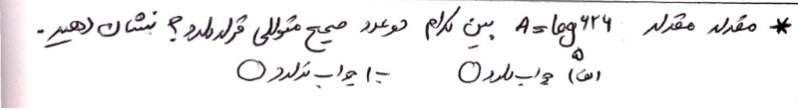 * مقدار مقدار A = log ۶۲۴ بین کدام دو عدد صحیح متوالی قرار دارد؟ نشان دهید.
۵
الف) جواب دارد ○ ب) جواب ندارد ○